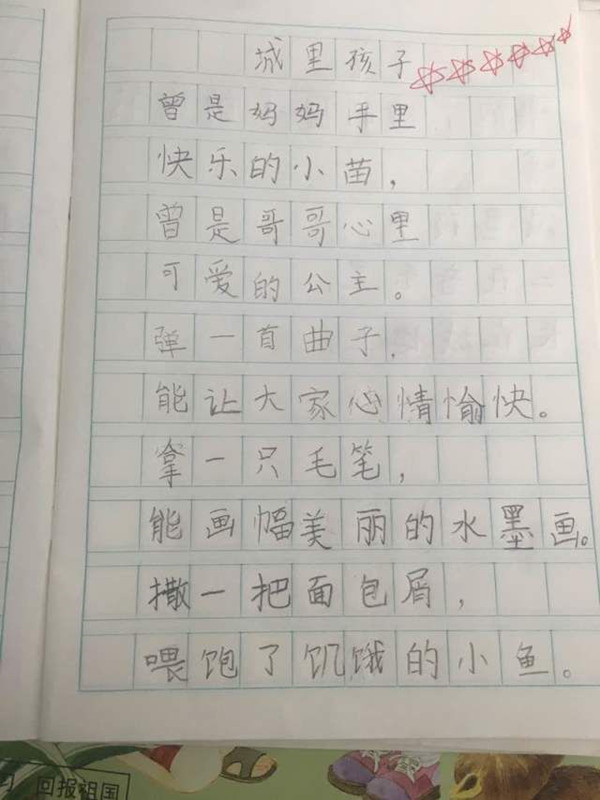 城里孩子
曾是妈妈手里
快乐的小苗，
曾是哥哥心里
可爱的公主。
弹一首曲子，
能让大家心情愉快。
拿一只毛笔，
能画幅美丽的水墨画。
撒一把面包屑，
喂饱了饥饿的小鱼。
回报祖国